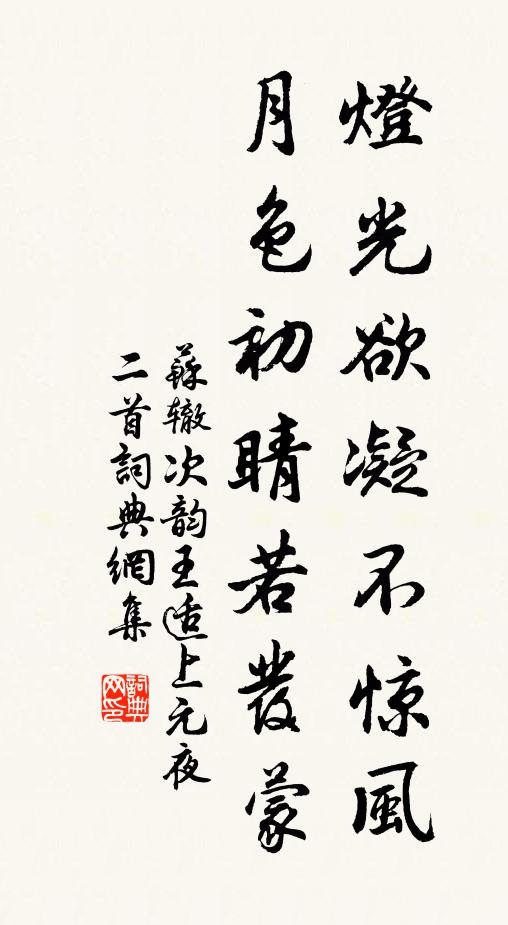 燈光欲凝不惊風
月色初晴若發蒙
蘇辙次韵王适上元夜
二首詞典網集
詞典
网印